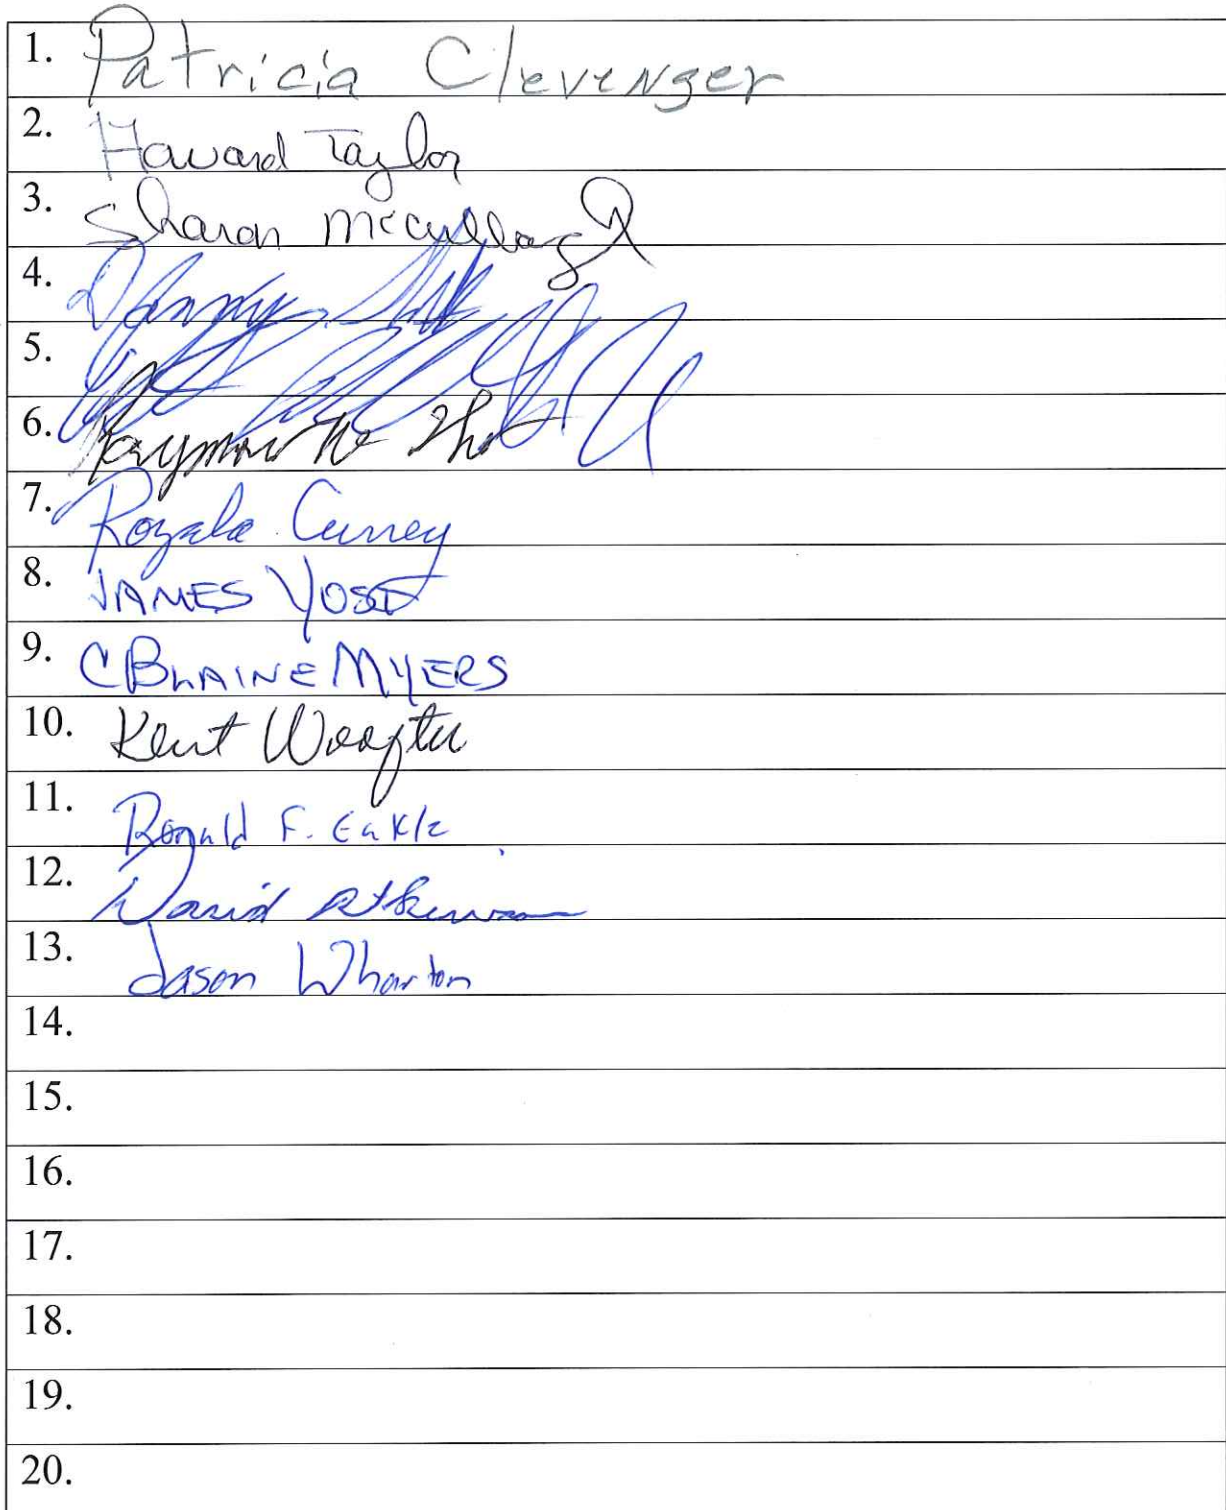 1. Patricia Clevenger
2. Howard Taylor
3. Sharon McCullough
4. Danny
5.
6.
7. Royale Currey
8. JAMES YOST
9. C BLAINE MYERS
10. Kent Woofter
11. Ronald F. Eakle
12. David Atkinson
13. Jason Wharton
14.
15.
16.
17.
18.
19.
20.